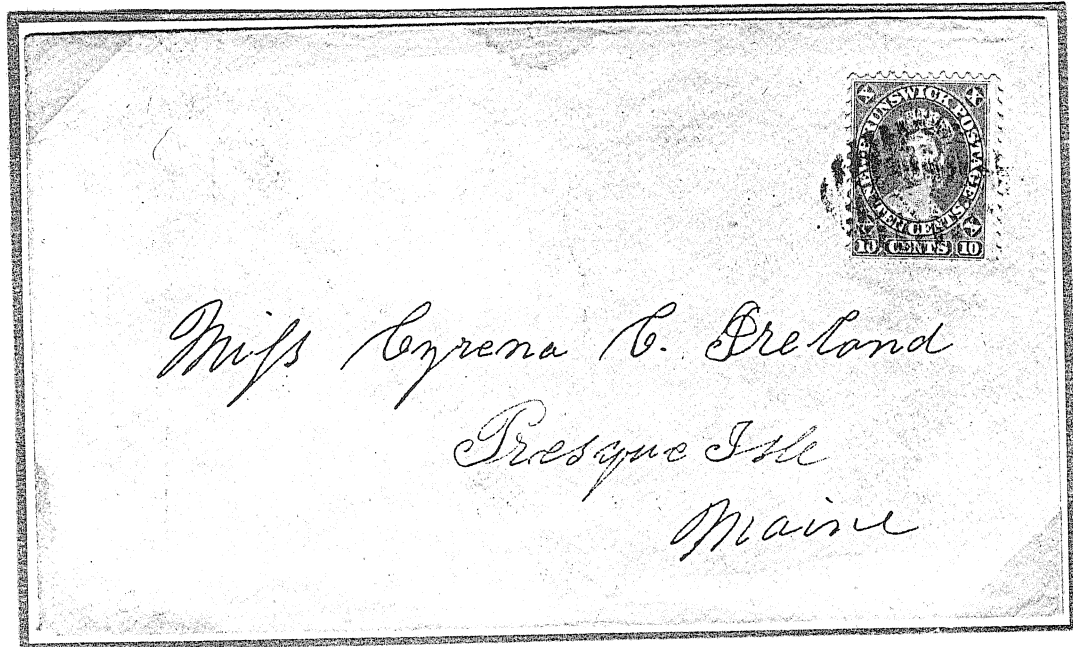 X X
NEW BRUNSWICK POSTAGE. TEN CENTS
X X
10 CENTS 10
Miſs Cyrena C. Ireland
Presque Isle
Maine